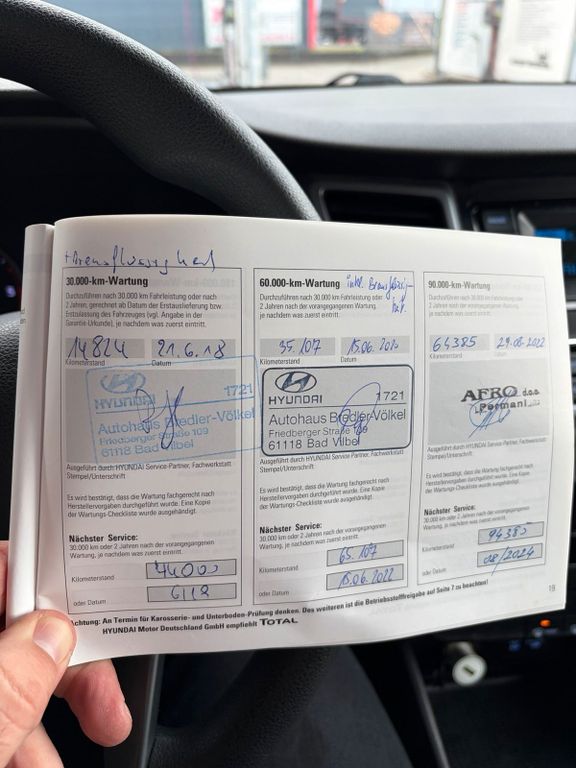 + Bremsflüssigkeit
30.000-km-Wartung
Durchzuführen nach 30.000 km Fahrleistung oder nach
2 Jahren, gerechnet ab Datum der Erstauslieferung bzw.
Erstzulassung des Fahrzeuges (vgl. Angabe in der
Garantie-Urkunde), je nachdem was zuerst eintritt.
14824 21.6.18
Kilometerstand Datum
HYUNDAI 1721
Autohaus Bredler-Völkel
Friedberger Straße 109
61118 Bad Vilbel
Ausgeführt durch HYUNDAI Service-Partner, Fachwerkstatt
Stempel/Unterschrift
Es wird bestätigt, dass die Wartung fachgerecht nach
Herstellervorgaben durchgeführt wurde. Eine Kopie
der Wartungs-Checkliste wurde ausgehändigt.
Nächster Service:
30.000 km oder 2 Jahre nach der vorangegangenen
Wartung, je nachdem was zuerst eintritt.
Kilometerstand 44000
oder Datum
60.000-km-Wartung inkl. Bremsflüssig-
keit
Durchzuführen nach 30.000 km Fahrleistung oder
2 Jahren nach der vorangegangenen Wartung,
je nachdem was zuerst eintritt.
35.107 15.06.20
Kilometerstand Datum
HYUNDAI 1721
Autohaus Bredler-Völkel
Friedberger Straße 109
61118 Bad Vilbel
Ausgeführt durch HYUNDAI Service-Partner, Fachwerkstatt
Stempel/Unterschrift
Es wird bestätigt, dass die Wartung fachgerecht nach
Herstellervorgaben durchgeführt wurde. Eine Kopie
der Wartungs-Checkliste wurde ausgehändigt.
Nächster Service:
30.000 km oder 2 Jahre nach der vorangegangenen
Wartung, je nachdem was zuerst eintritt.
Kilometerstand 65.107
oder Datum 15.06.2022
90.000-km-Wartung
Durchzuführen nach 30.000 km Fahrleistung oder
2 Jahren nach der vorangegangenen Wartung,
je nachdem was zuerst eintritt.
64385 29.08.2022
Kilometerstand Datum
AFRO d.o.o.
Permani
Ausgeführt durch HYUNDAI Service-Partner, Fachwerkstatt
Stempel/Unterschrift
Es wird bestätigt, dass die Wartung fachgerecht nach
Herstellervorgaben durchgeführt wurde. Eine Kopie
der Wartungs-Checkliste wurde ausgehändigt.
Nächster Service:
30.000 km oder 2 Jahre nach der vorangegangenen
Wartung, je nachdem was zuerst eintritt.
Kilometerstand 94385
oder Datum 08/2024
Achtung: An Termin für Karosserie- und Unterboden-Prüfung denken. Des weiteren ist die Betriebsstofffreigabe auf Seite 7 zu beachten!
HYUNDAI Motor Deutschland GmbH empfiehlt TOTAL
19